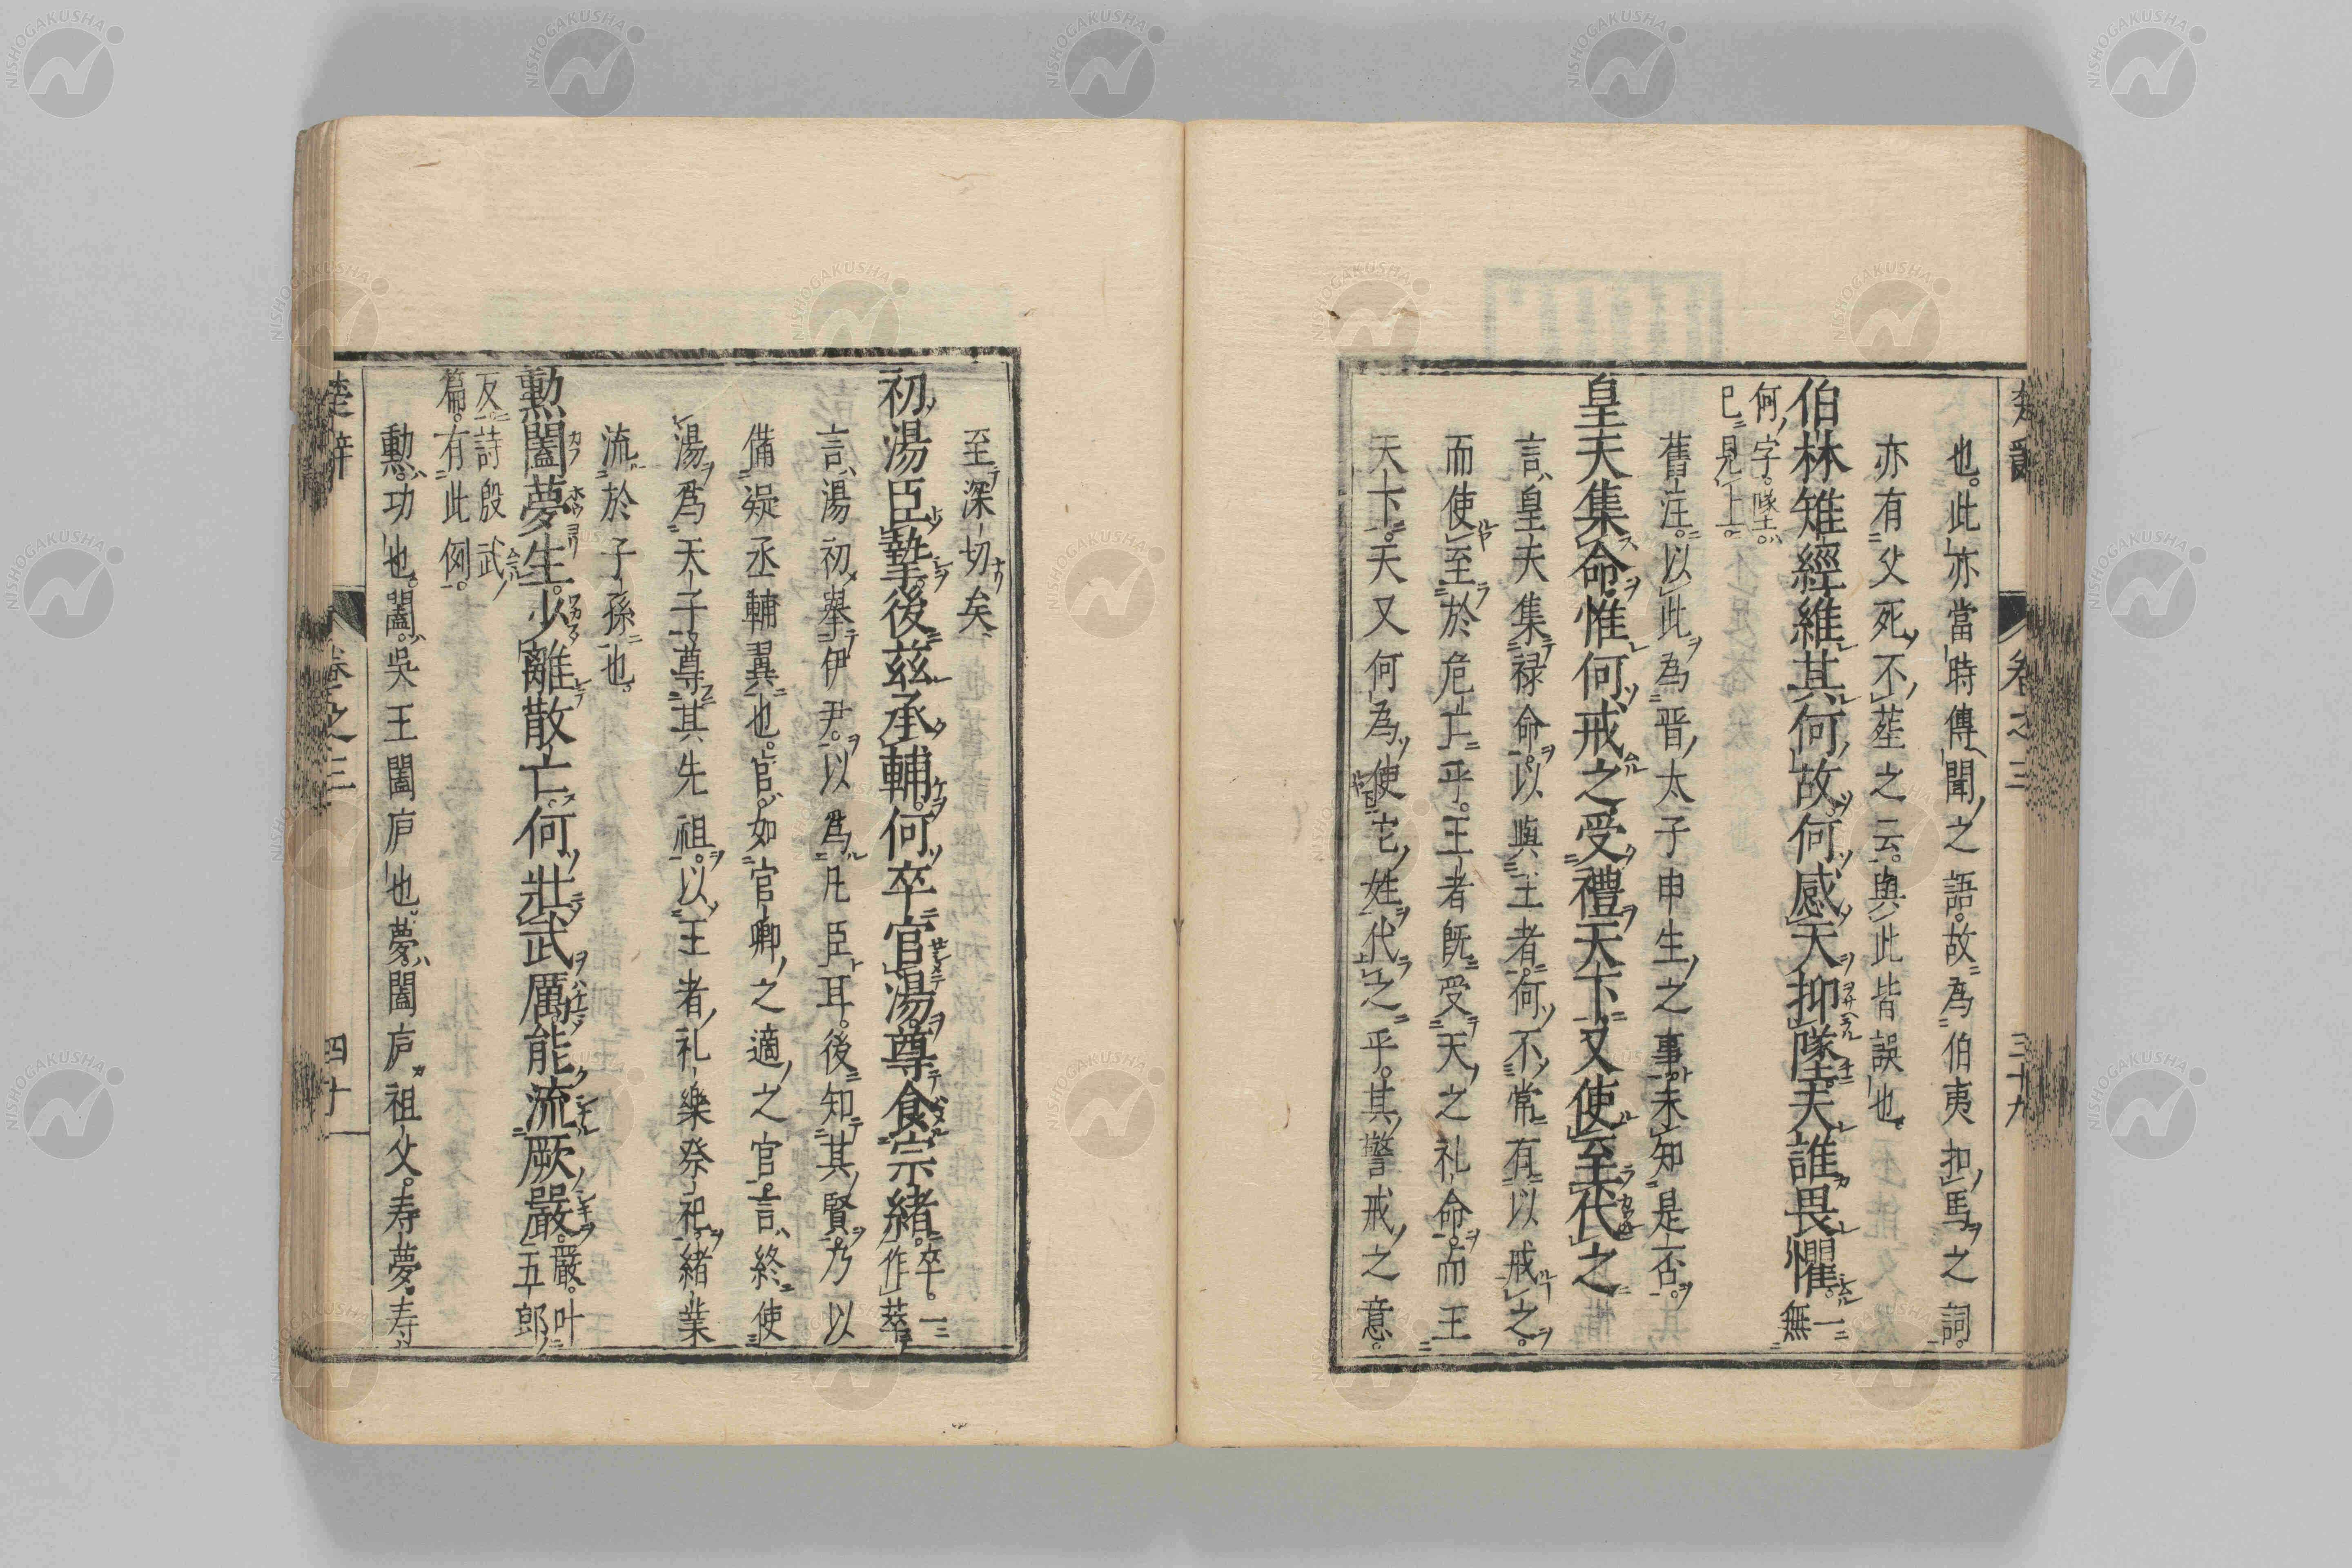 也。此亦當時傳聞之語。故為伯夷扣馬之詞。
亦有父死不葬之云。與此皆誤也。
伯林雉經維其何故何感天抑墜夫誰畏懼 一無
何字。墜。
已見上。
舊注以此為晋太子申生之事。未知是否。
皇天集命惟何戒之受禮天下又使至代之
言皇天集禄命以與王者。何不常有以戒之。
而使至於危亡乎。王者既受天之礼命。而王
天下。天又何為使它姓代之乎。其警戒之意。
至深切矣
初湯臣摯後茲承輔何卒官湯尊食宗緒 卒。一作萃
言湯初舉伊尹以為凡臣耳。後知其賢。乃以
備疑丞輔翼也。官如官卿之適之官。言終使
湯為天子尊其先祖。以王者礼樂祭祀。緒業
流於子孫也。
勲闔夢生少離散亡何壯武厲能流厥嚴 嚴。叶五郎
反。詩殷武
篇。有此例。
勲功也。闔。吳王闔庐也。夢闔庐祖父。寿夢寿
卷之三
三十九
楚辭
卷之三
四十